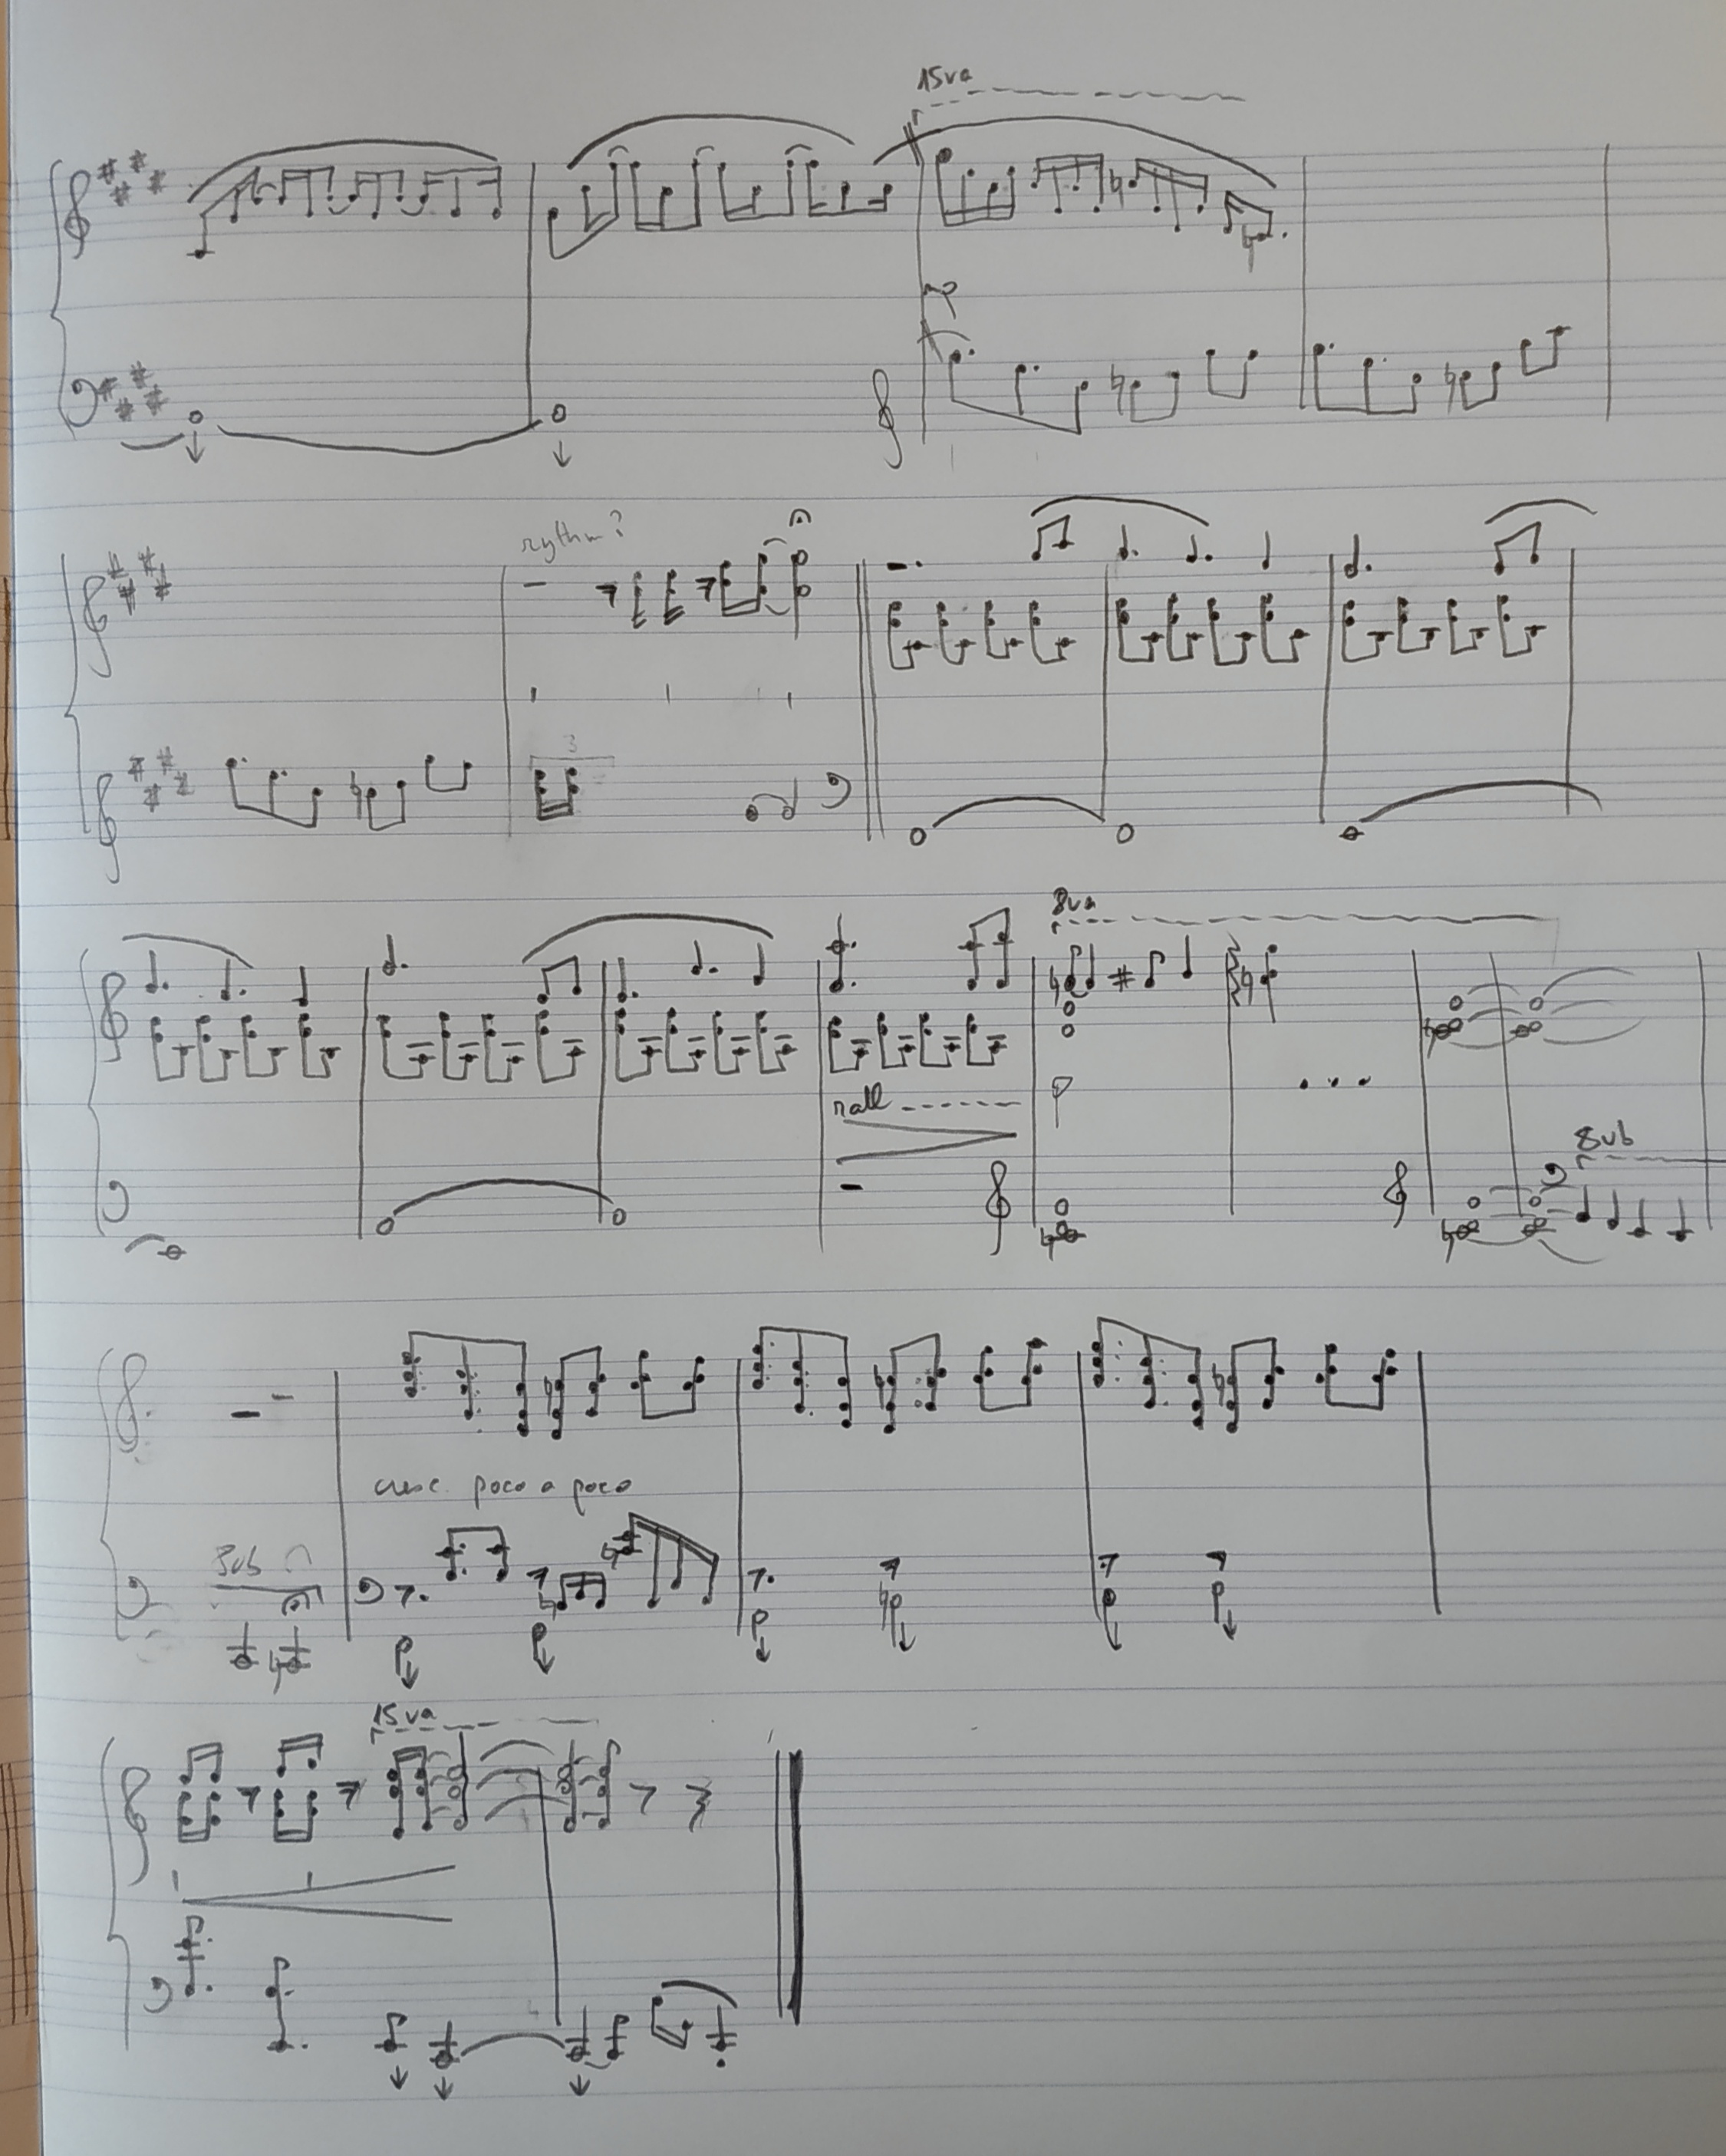 15va
rythm?
3
8va
rall
8vb
cresc. poco a poco
15va